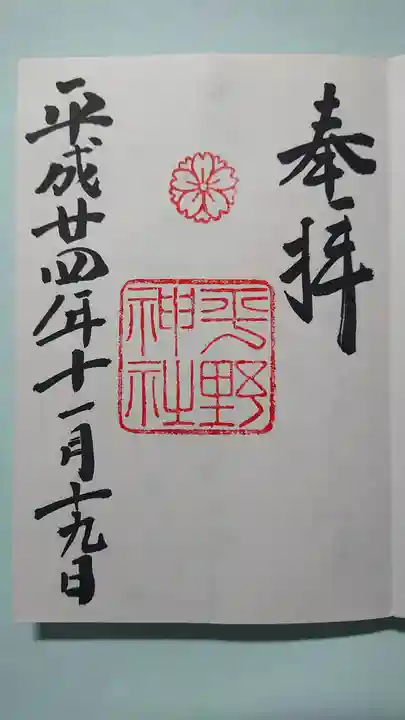 奉拝
平野
神社
平成廿四年十一月十九日